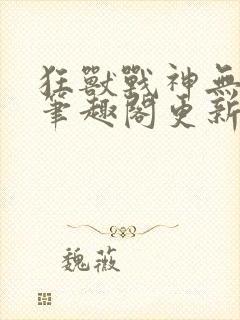 狂獸戰神無
筆趣閣更新
魏薇